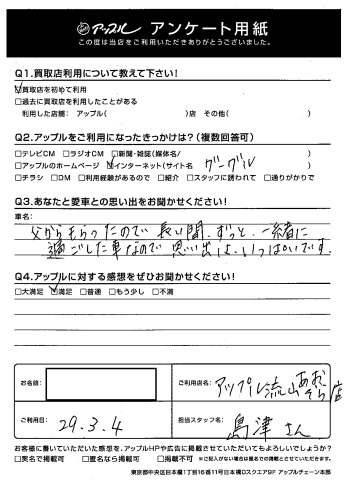 アップル アンケート用紙
この度は当店をご利用いただきありがとうございました。
Q1.買取店利用について教えて下さい！
☑買取店を初めて利用
□過去に買取店を利用したことがある
利用した店舗： アップル( )店 その他( )
Q2.アップルをご利用になったきっかけは？（複数回答可）
□テレビCM □ラジオCM □新聞・雑誌(媒体名/ )
□アップルのホームページ ☑インターネット(サイト名 グーグル )
□チラシ □DM □利用経験があるので □紹介 □スタッフに誘われて □通りがかりで
Q3.あなたと愛車との思い出をお聞かせください！
車名：
父からもらったので長い間、ずっと、一緒に
過ごした車なので思い出は、いっぱいです。
Q4.アップルに対する感想をぜひお聞かせください！
□大満足 ☑満足 □普通 □もう少し □不満
お名前：
ご利用店名： アップル流山おおたかの森店
ご利用日： 29.3.4
担当スタッフ名： 島津さん
お客様に書いていただいた感想を、アップルHPや広告に掲載させていただいてもよろしいでしょうか？
□実名で掲載可 □匿名なら掲載可 □掲載不可 ※ご記入がない場合は匿名での掲載とさせていただきます。
東京都中央区日本橋1丁目16番11号日本橋Dスクエア9F アップルチェーン本部